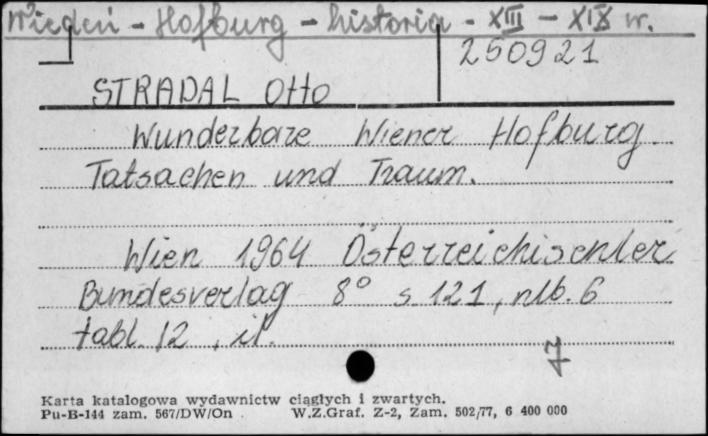 Wiedeń - Hofburg - historia - XIII - XIX w.
250921
STRADAL Otto
Wunderbare Wiener Hofburg
Tatsachen und Traum.
Wien 1964 Österreichischer
Bundesverlag 8° s. 121, nlb. 6
tabl. 12, il.
7
Karta katalogowa wydawnictw ciągłych i zwartych.
Pu-B-144 zam. 567/DW/On W.Z.Graf. Z-2, Zam. 502/77, 6 400 000